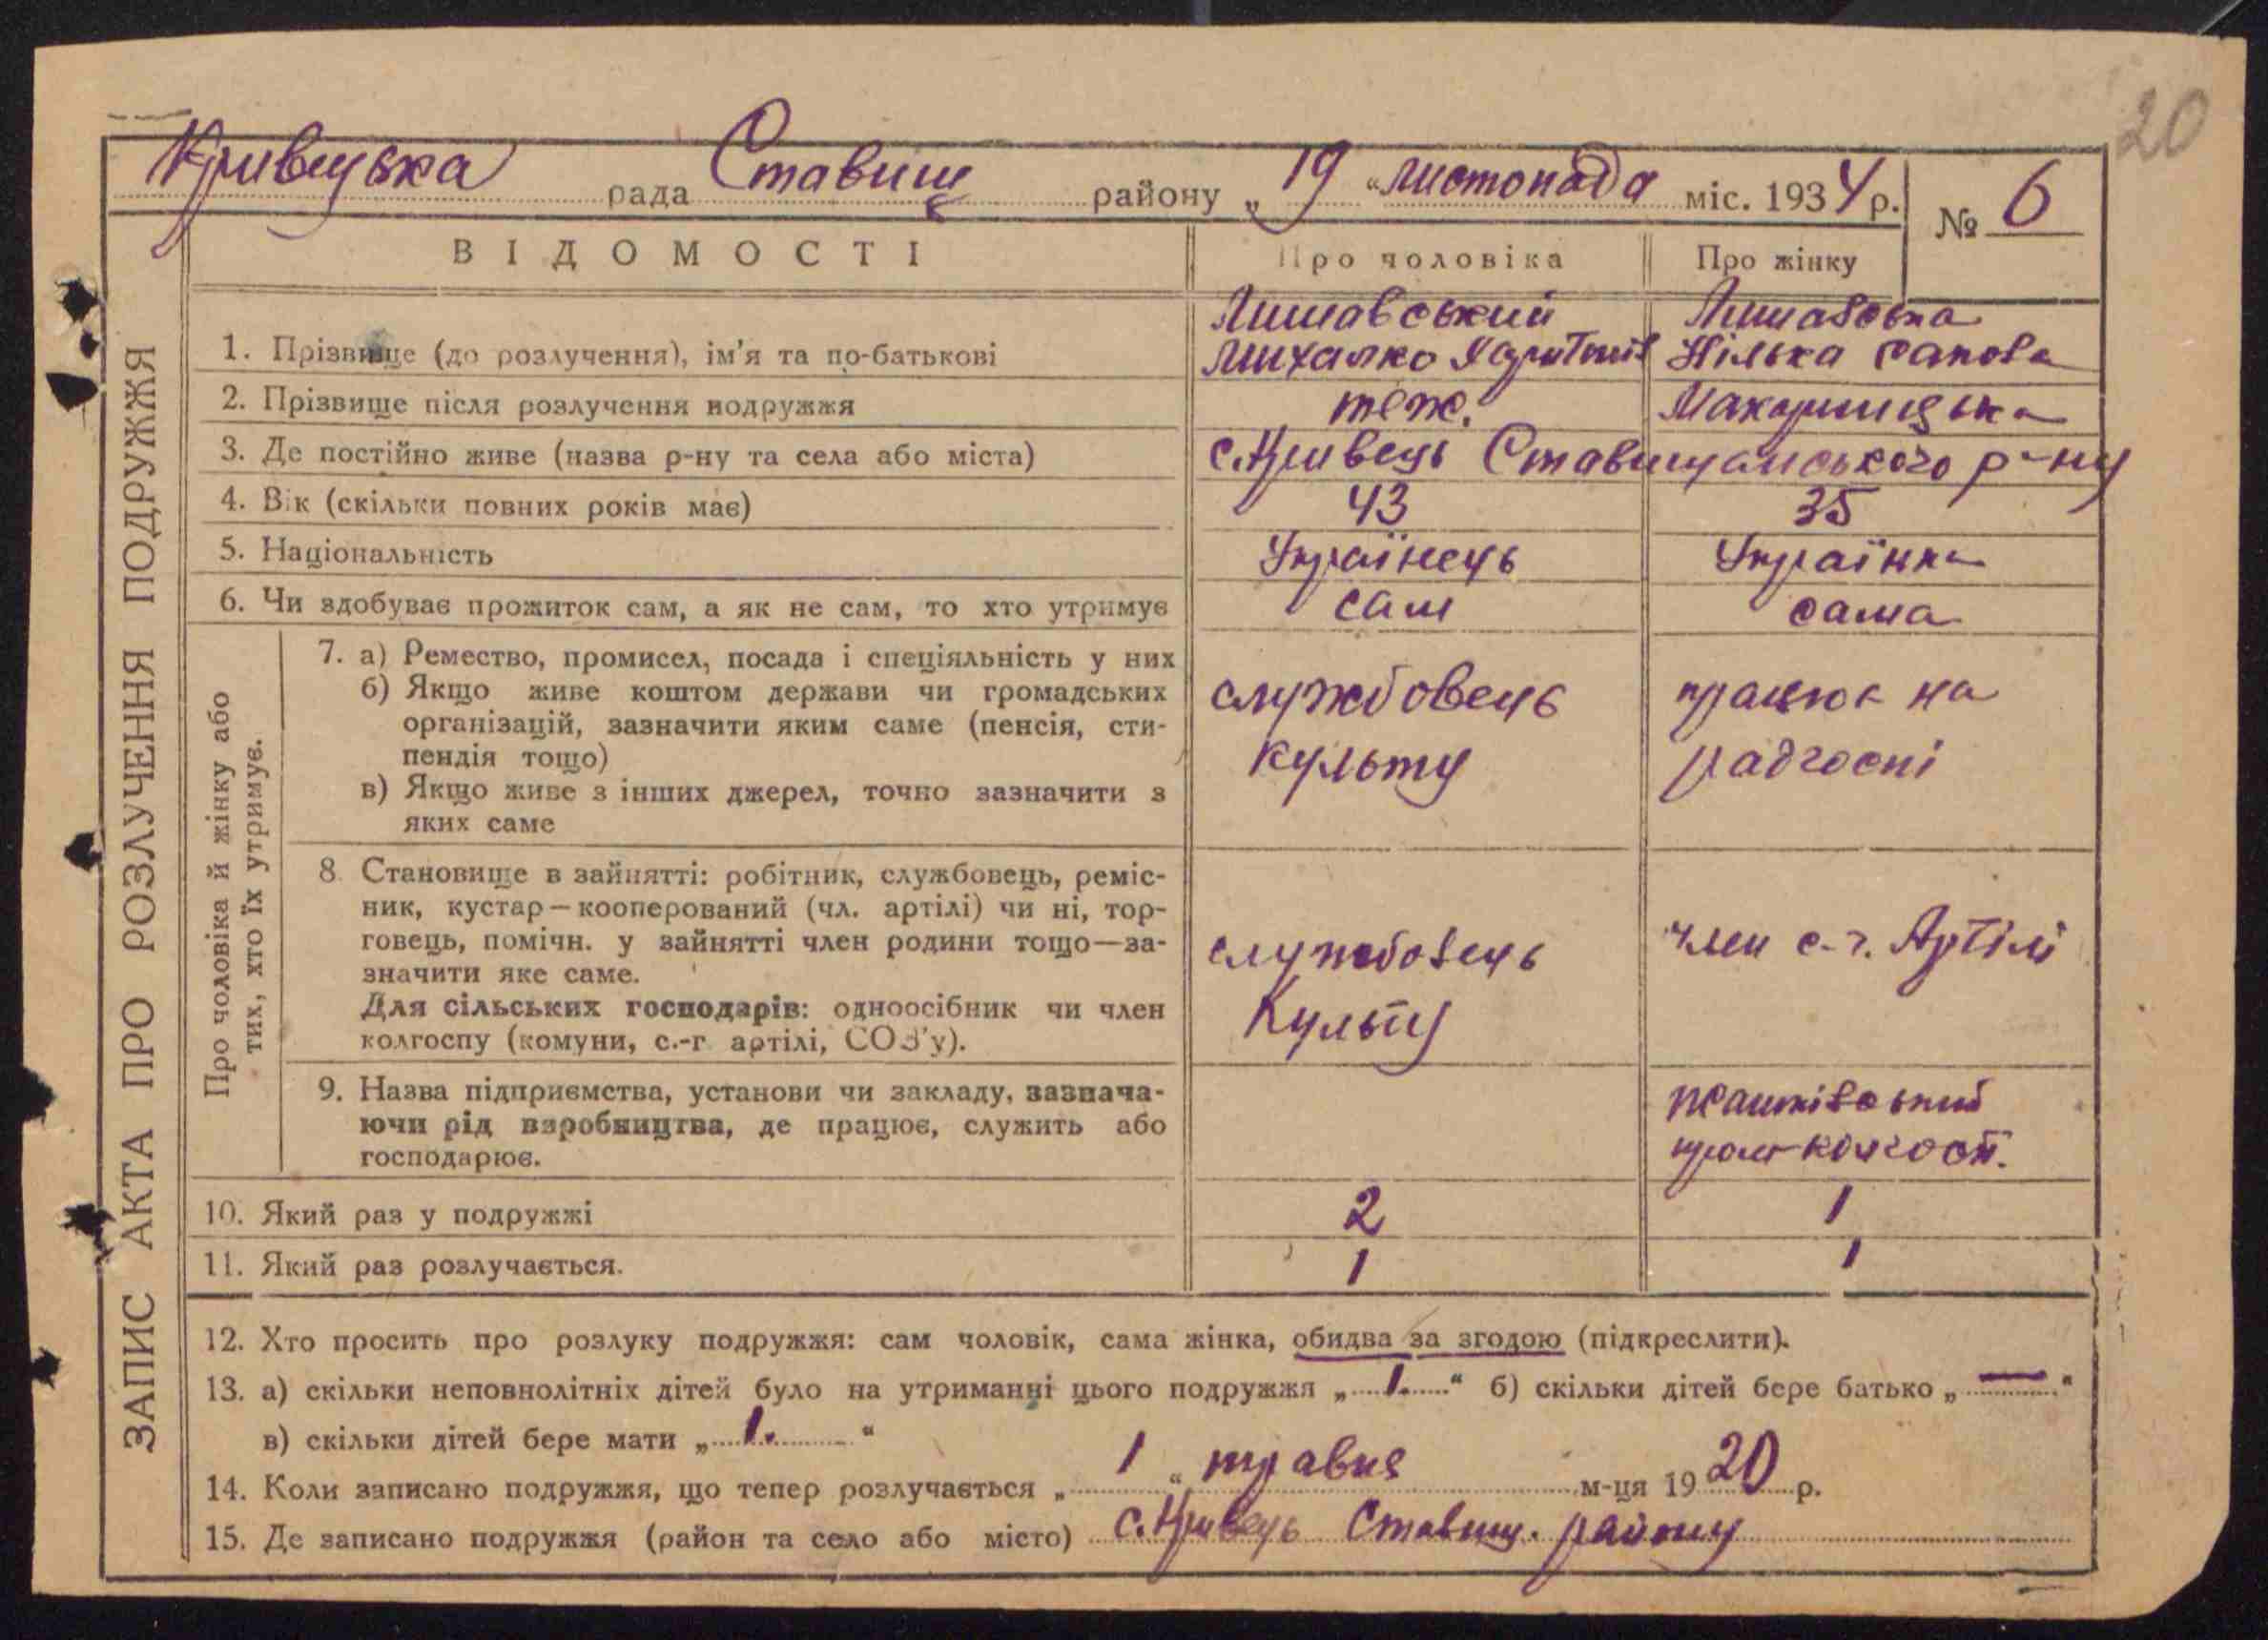 20
Кривецька рада Ставищ району „19“ листопада міс. 1934 р. № 6
ВІДОМОСТІ Про чоловіка Про жінку
ЗАПИС АКТА ПРО РОЗЛУЧЕННЯ ПОДРУЖЖЯ
1. Прізвище (до розлучення), ім'я та по-батькові
2. Прізвище після розлучення подружжя теж.
3. Де постійно живе (назва р-ну та села або міста) с. Кривець Ставищанського р-ну
4. Вік (скільки повних років має) 43 35
5. Національність Українець Українка
6. Чи здобуває прожиток сам, а як не сам, то хто утримує сам сама
Про чоловіка й жінку або
тих, хто їх утримує.
7. а) Ремество, промисел, посада і спеціяльність у них
б) Якщо живе коштом держави чи громадських службовець працює на
організацій, зазначити яким саме (пенсія, сти-
пендія тощо) культу радгоспі
в) Якщо живе з інших джерел, точно зазначити з
яких саме
8. Становище в зайнятті: робітник, службовець, реміс-
ник, кустар—кооперований (чл. артілі) чи ні, тор-
говець, помічн. у зайнятті член родини тощо—за- службовець член с-г. Артілі
значити яке саме.
Для сільських господарів: одноосібник чи член Культу
колгоспу (комуни, с.-г артілі, СОЗ'у).
9. Назва підприємства, установи чи закладу, зазнача-
ючи рід виробництва, де працює, служить або
господарює.
10. Який раз у подружжі 2 1
11. Який раз розлучається. 1 1
12. Хто просить про розлуку подружжя: сам чоловік, сама жінка, обидва за згодою (підкреслити).
13. а) скільки неповнолітніх дітей було на утриманні цього подружжя „1.“ б) скільки дітей бере батько „—“
в) скільки дітей бере мати „1.“
14. Коли записано подружжя, що тепер розлучається „1“ травня м-ця 1920 р.
15. Де записано подружжя (район та село або місто) с. Кривець Ставищ. району